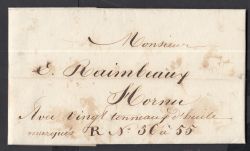 Monsieur
E. Raimbeaux
Hornu
Avec vingt tonneaux d'huile
marqués R N° 36 à 55